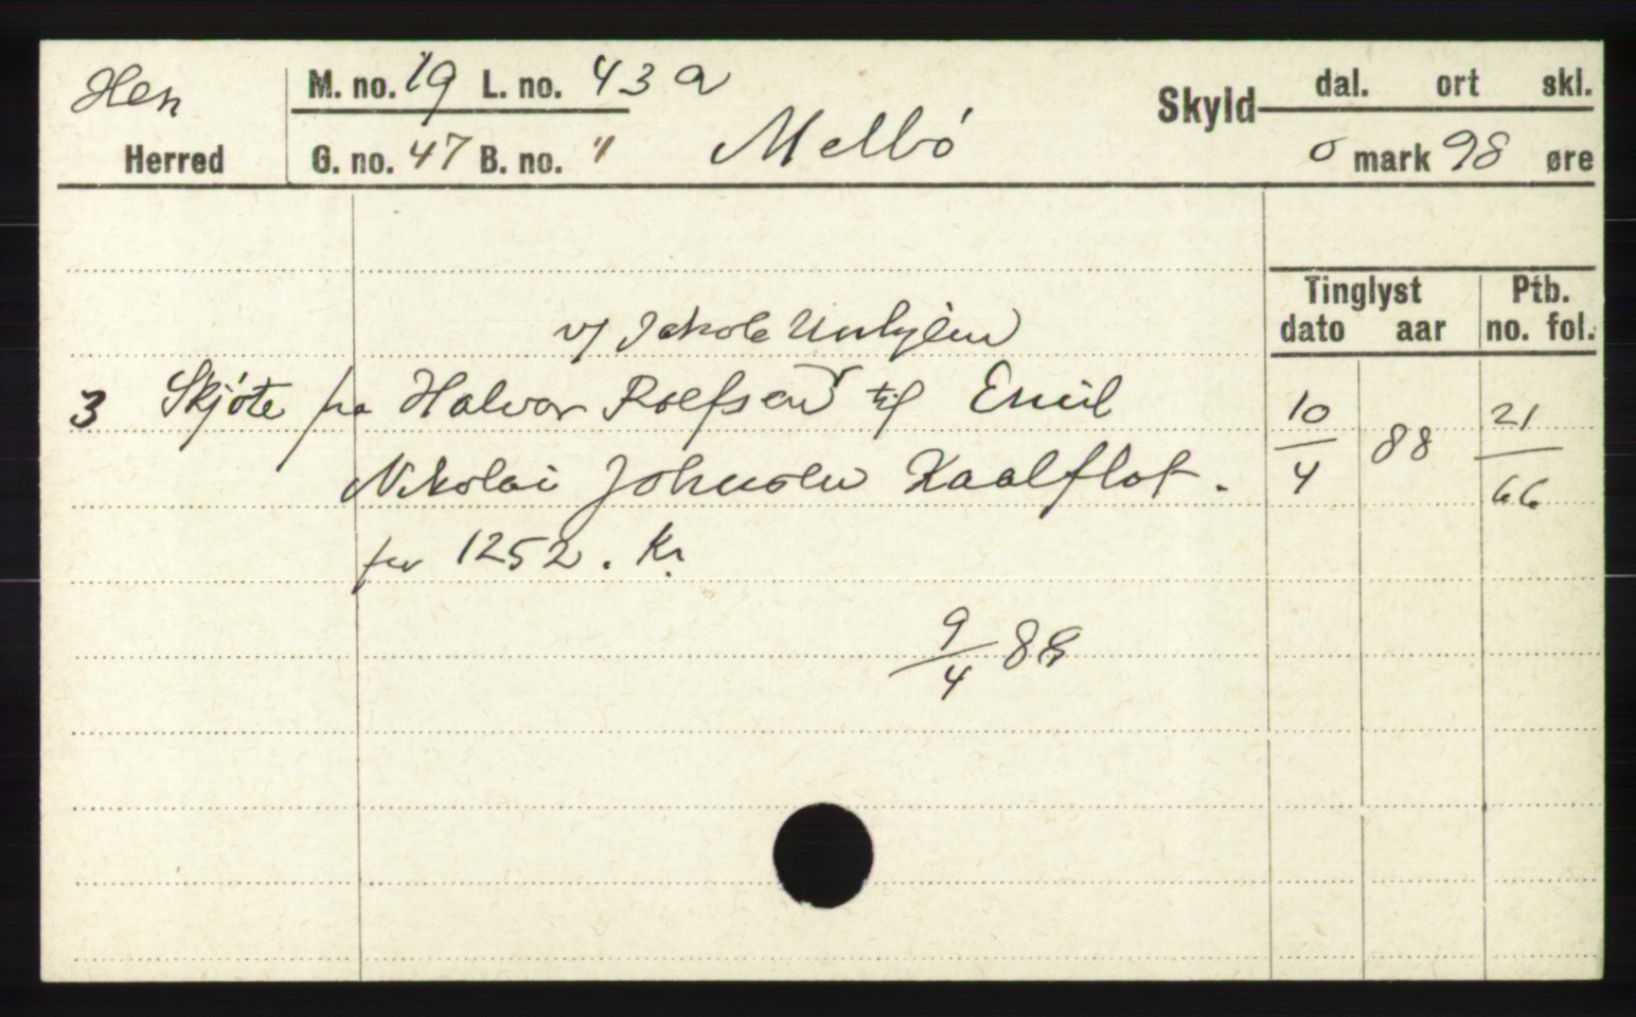 Hen M. no. 19 L. no. 43 a Skyld dal. ort skl.
Herred G. no. 47 B. no. " Melbö 0 mark 98 øre
Tinglyst Ptb.
dato aar no. fol.
v/ Jakob
3 Skjöte fra Halvor Rolfsen til Emil 10/4 88 21/66
Nikolai Johnsen Kaalflot.
for 1252. Kr
9/4 88